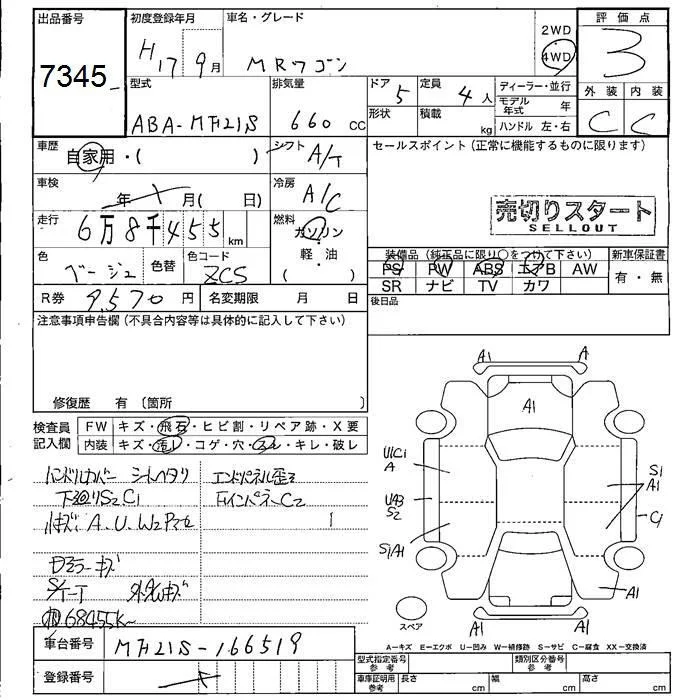 出品番号
7345
初度登録年月
H17 9月
車名・グレード
MRワゴン
2WD
4WD
評価点
3
外装 内装
C C
型式
ABA-MF21S
排気量
660 CC
ドア
5
形状
定員
4人
積載
kg
ディーラー・並行
モデル年式 年
ハンドル 左・右
車歴
自家用・( )
シフト
A/T
セールスポイント(正常に機能するものに限ります)
車検
年 月( 日)
冷房
A/C
売切りスタート
SELLOUT
走行
6万8千455km
燃料
ガソリン
軽・油
( )
色
ベージュ
色替
色コード
ZCS
装備品(純正品に限り○をつけて下さい)
PS PW ABS エアB AW
SR ナビ TV カワ
新車保証書
有・無
R券 9,570円
名変期限 月 日
後日品
注意事項申告欄(不具合内容等は具体的に記入して下さい)
修復歴 有〔箇所 〕
検査員
記入欄
FW キズ・飛石・ヒビ割・リペア跡・X要
内装 キズ・汚レ・コゲ・穴・スレ・キレ・破レ
ハンドルカバー シートヘタリ
エンドパネル歪ミ
下廻りS2C1
FインパネC2
A.U.W2P
Dミラーキズ
68455K
A1 A
A1
U1C1
A
UA3
S2
S1A1
S1
A1
C1
A1
A1 A1
スペア
A-キズ E-エクボ U-凹み W-補修跡 S-サビ C-腐食 XX-交換済
車台番号
MF21S-166519
登録番号
型式指定番号
参考
類別区分番号
参考
車庫証明用
参考
長さ cm
幅 cm
高さ cm